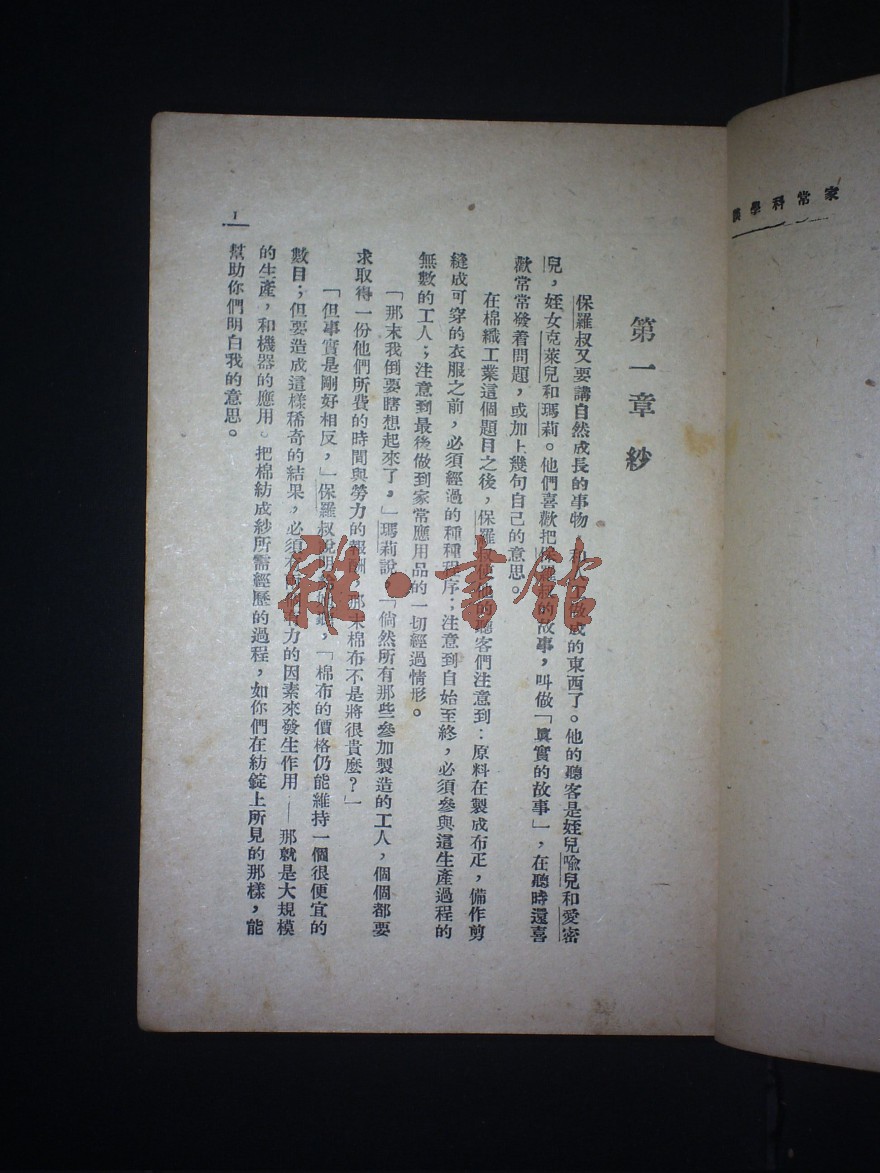 家常科學
第一章 紗
保羅叔又要講自然成長的事物 的東西了。他的聽客是姪兒喩兒和愛密
兒，姪女克萊兒和瑪莉。他們喜歡把保羅叔的故事，叫做「眞實的故事」，在聽時還喜
歡常常發着問題，或加上幾句自己的意思。
在棉織工業這個題目之後，保羅叔使他的聽客們注意到：原料在製成布疋，備作剪
縫成可穿的衣服之前，必須經過的種種程序；注意到自始至終，必須參與這生產過程的
無數的工人；注意到最後做到家常應用品的一切經過情形。
「那末我倒要瞎想起來了，」瑪莉說，「倘然所有那些參加製造的工人，個個都要
求取得一份他們所費的時間與勞力的報酬，那末棉布不是將很貴麼？」
「但事實是剛好相反，」保羅叔說明 ，「棉布的價格仍能維持一個很便宜的
數目；但要造成這樣稀奇的結果，必須有 力的因素來發生作用——那就是大規模
的生產，和機器的應用。把棉紡成紗所需經歷的過程，如你們在紡錠上所見的那樣，能
幫助你們明白我的意思。
1
雜·書館